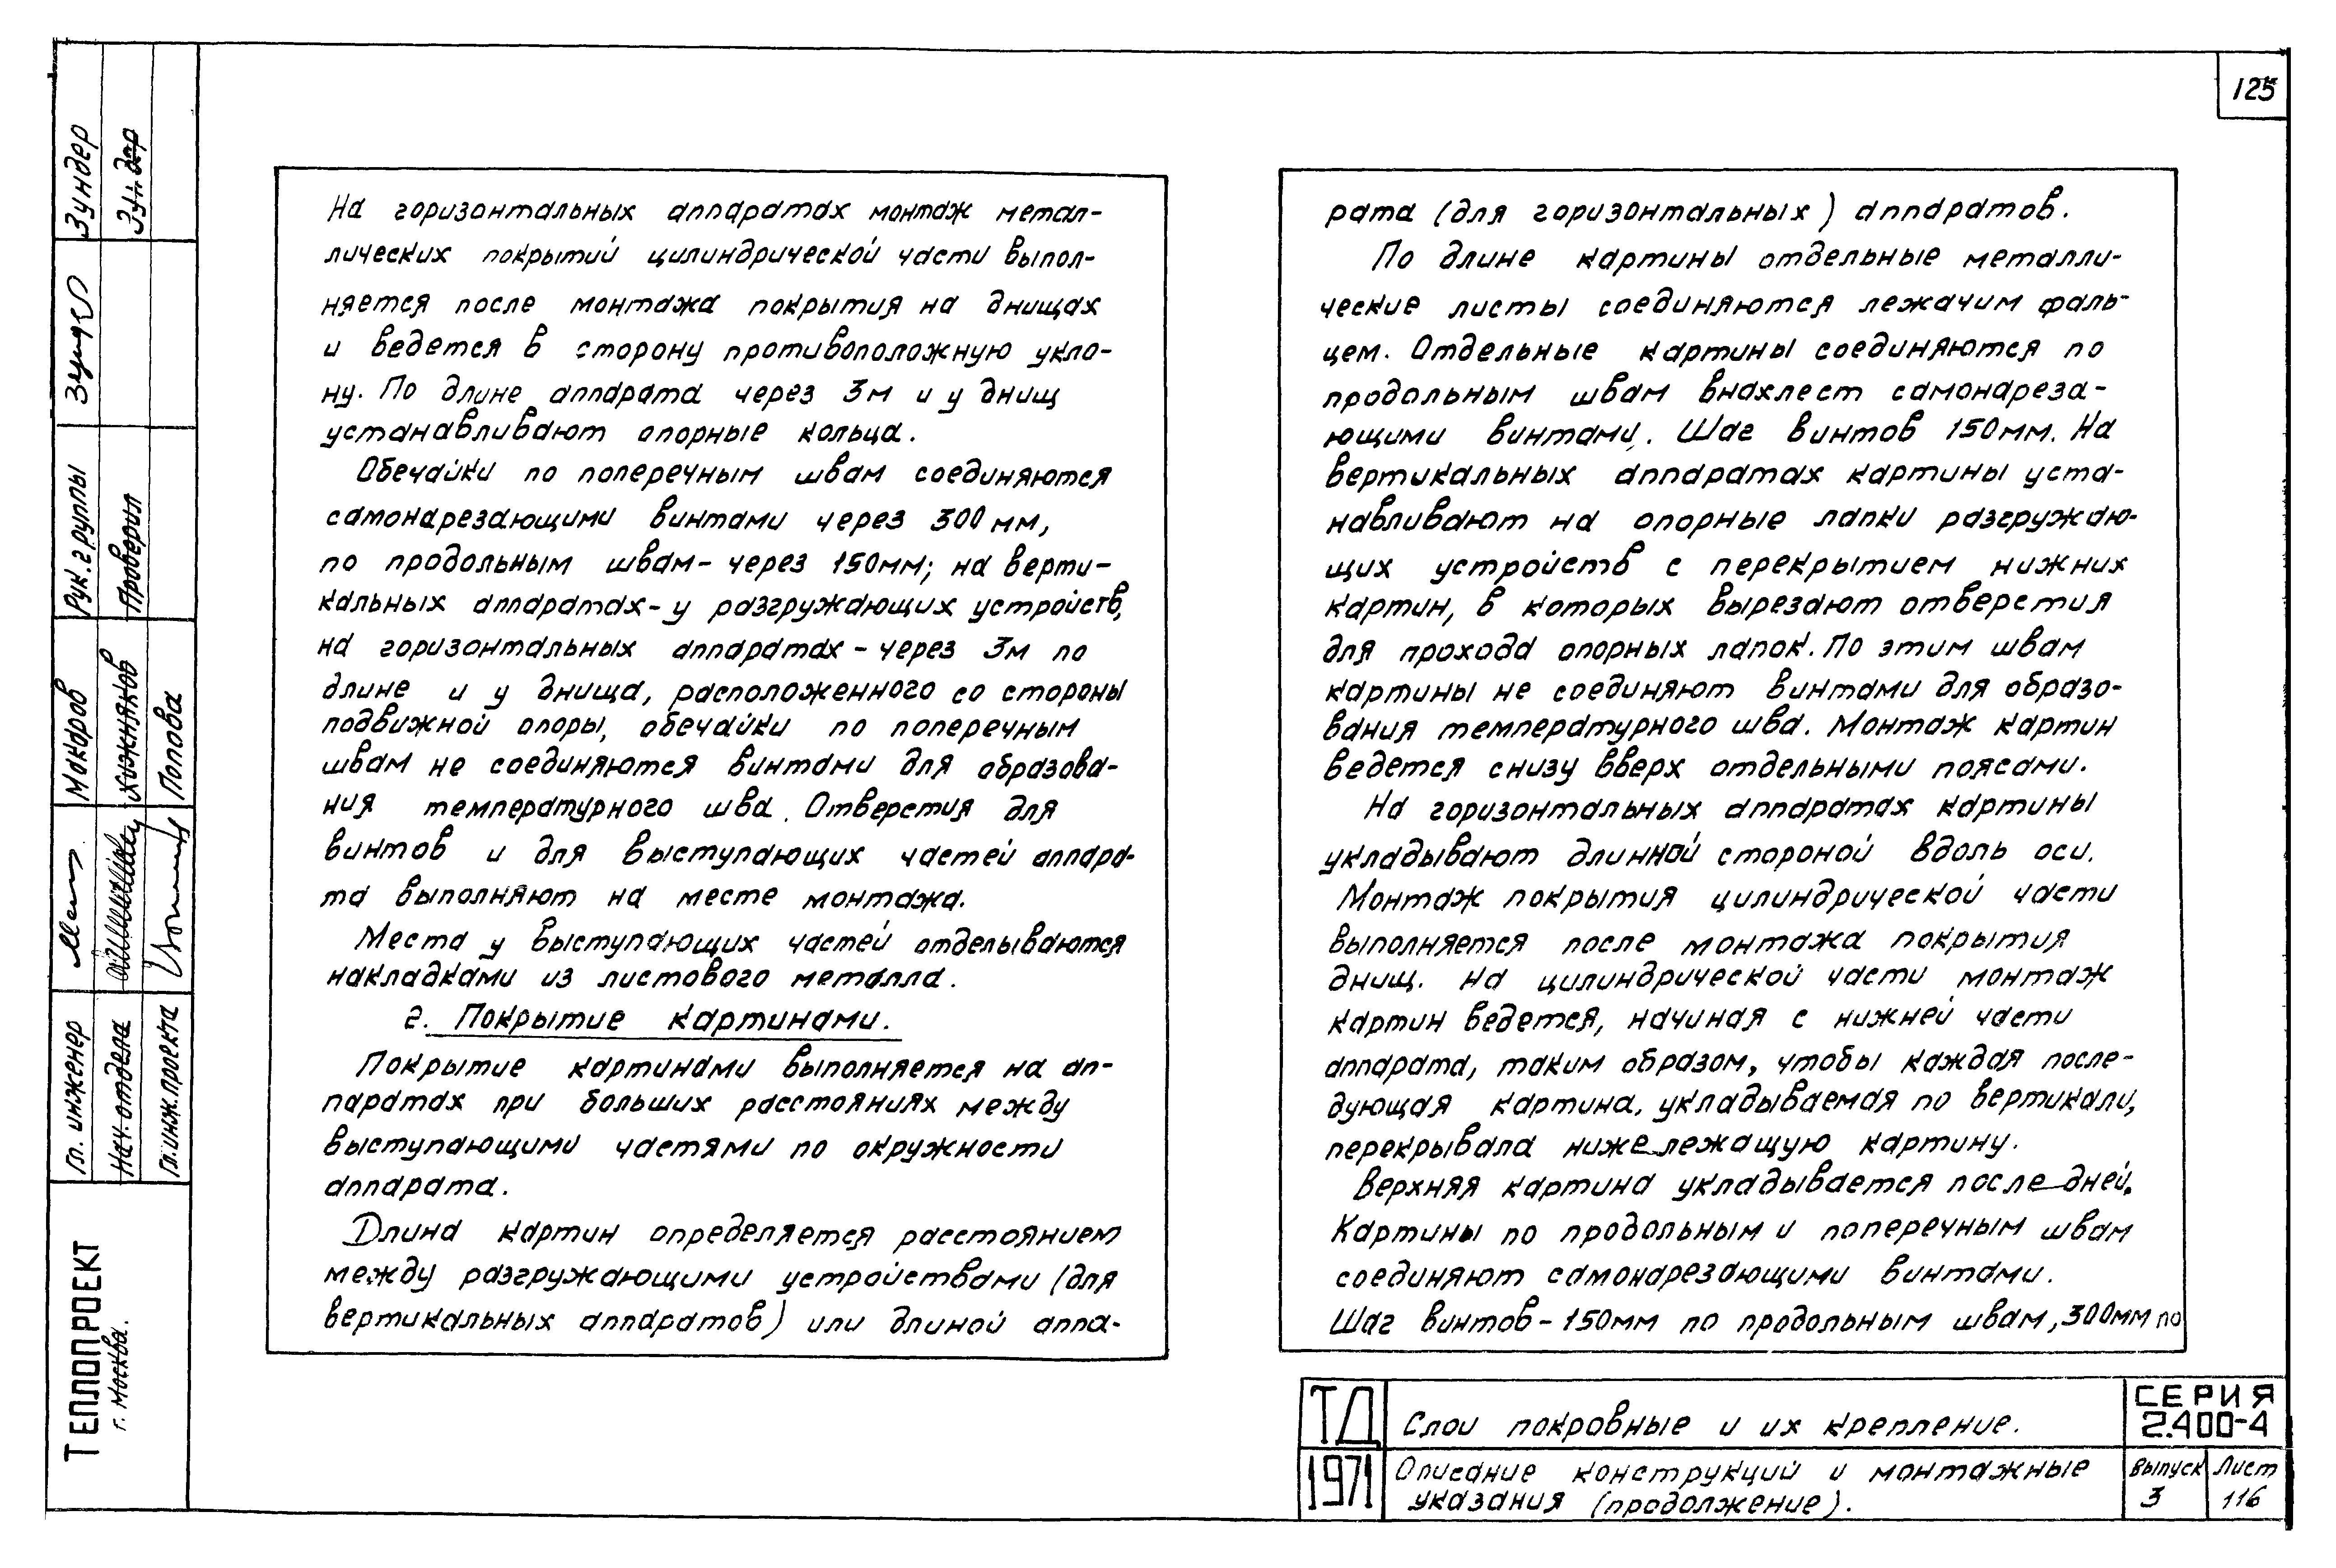 125
На горизонтальных аппаратах монтаж метал-
лических покрытий цилиндрической части выпол-
няется после монтажа покрытия на днищах
и ведется в сторону противоположную укло-
ну. По длине аппарата через 3м и у днищ
устанавливают опорные кольца.
Обечайки по поперечным швам соединяются
самонарезающими винтами через 300 мм,
по продольным швам- через 150мм; на верти-
кальных аппаратах- у разгружающих устройств,
на горизонтальных аппаратах - через 3м по
длине и у днища, расположенного со стороны
подвижной опоры, обечайки по поперечным
швам не соединяются винтами для образова-
ния температурного шва. Отверстия для
винтов и для выступающих частей аппара-
та выполняют на месте монтажа.
Места у выступающих частей отделываются
накладками из листового металла.
г. Покрытие картинами.
Покрытие картинами выполняется на ап-
паратах при больших расстояниях между
выступающими частями по окружности
аппарата.
Длина картин определяется расстоянием
между разгружающими устройствами (для
вертикальных аппаратов) или длиной аппа-
рата (для горизонтальных) аппаратов.
По длине картины отдельные металли-
ческие листы соединяются лежачим фаль-
цем. Отдельные картины соединяются по
продольным швам внахлест самонареза-
ющими винтами. Шаг винтов 150мм. На
вертикальных аппаратах картины уста-
навливают на опорные лапки разгружаю-
щих устройств с перекрытием нижних
картин, в которых вырезают отверстия
для прохода опорных лапок. По этим швам
картины не соединяют винтами для образо-
вания температурного шва. Монтаж картин
ведется снизу вверх отдельными поясами.
На горизонтальных аппаратах картины
укладывают длинной стороной вдоль оси.
Монтаж покрытия цилиндрической части
выполняется после монтажа покрытия
днищ. На цилиндрической части монтаж
картин ведется, начиная с нижней части
аппарата, таким образом, чтобы каждая после-
дующая картина, укладываемая по вертикали,
перекрывала нижележащую картину.
Верхняя картина укладывается последней.
Картины по продольным и поперечным швам
соединяют самонарезающими винтами.
Шаг винтов - 150мм по продольным швам, 300мм по
ТД
1971
Слои покровные и их крепление.
Описание конструкций и монтажные
указания (продолжение).
СЕРИЯ
2.400-4
Выпуск
3
Лист
116
Гл. инженер
Макаров
Рук. группы
Зундер
Нач. отдела
Хижняков
Проверил
Зундер
Гл. инж. проекта
Попова
ТЕПЛОПРОЕКТ
г. Москва.